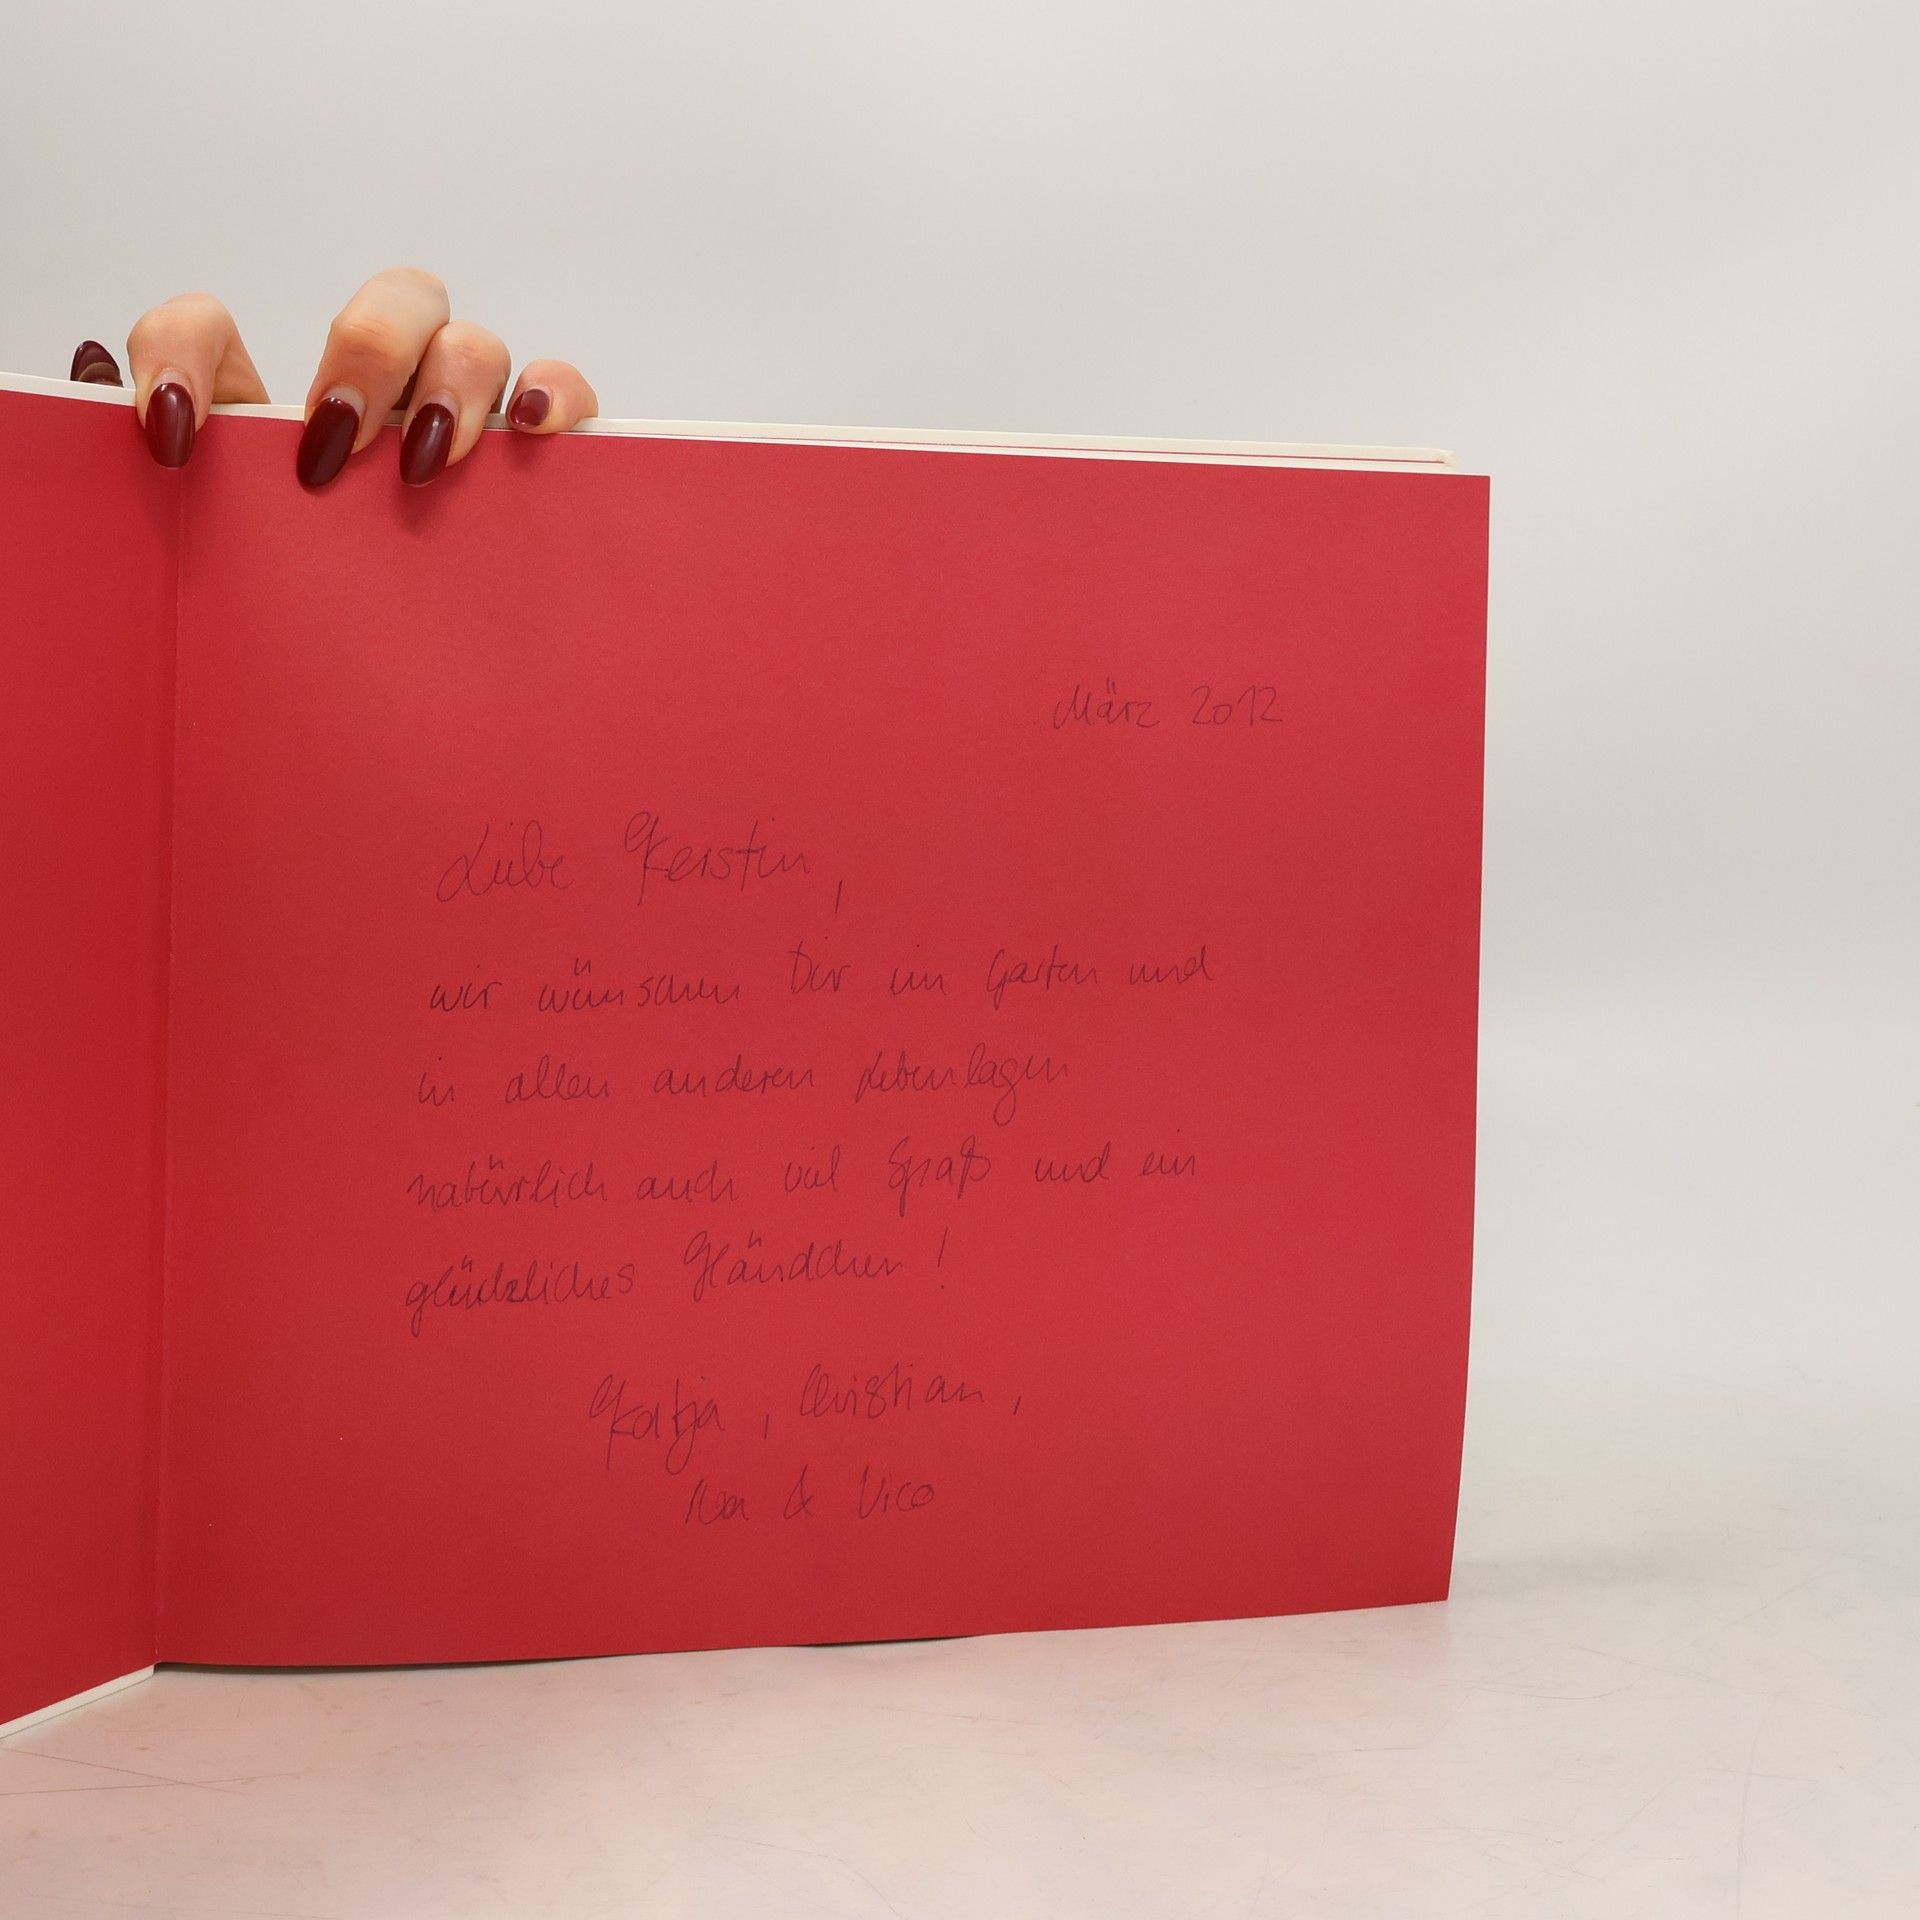 März 2012
Liebe Kerstin,
wir wünschen Dir im Garten und
in allen anderen Lebenlagen
natürlich auch viel Spaß und ein
glückliches Händchen!
Katja, Christian,
& Vico